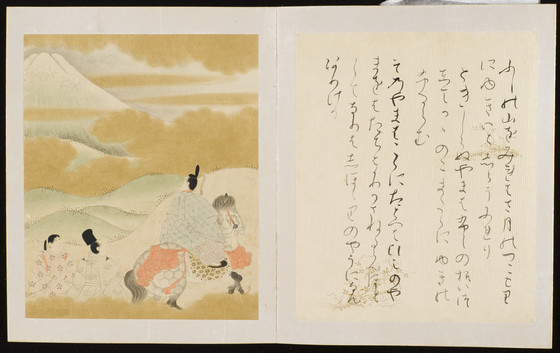 ふしの山をみれはさ月のつこもり
にゆきいとしろうふれり
ときしらぬやまはふしのねいつ
とてかかのこまたらにゆきの
ふるらむ
そのやまはここにたとへはひえのや
まをはたちはかりかさねあけたらんほと
してなりはしほしりのやうになん
ありける